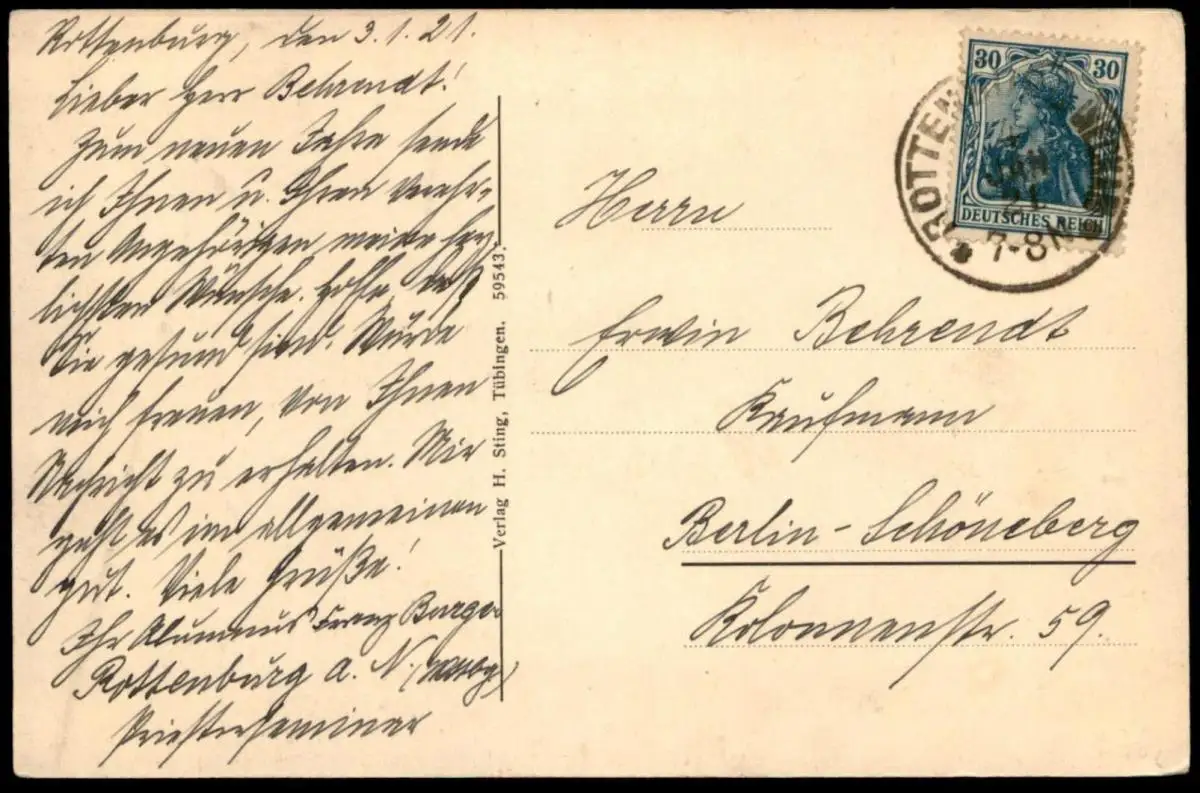 Rottenburg, den 3.1.21.
Lieber Herr Behrendt!
Zum neuen Jahre sende
ich Ihnen u. Ihren verehr-
ten Angehörigen meine herz-
lichsten Wünsche. Hoffe, daß
Sie gesund sind. Würde
mich freuen, von Ihnen
Nachricht zu erhalten. Mir
geht es im allgemeinen
gut. Viele Grüße!
Ihr Alumnus Franz Burger
Rottenburg a. N. (Wttbg.)
Priesterseminar
Verlag H. Sting, Tübingen. 59543.
30 30
DEUTSCHES REICH
ROTTEN
JAN
21
7-8N
Herrn
Erwin Behrendt
Kaufmann
Berlin-Schöneberg
Kolonnenstr. 59.